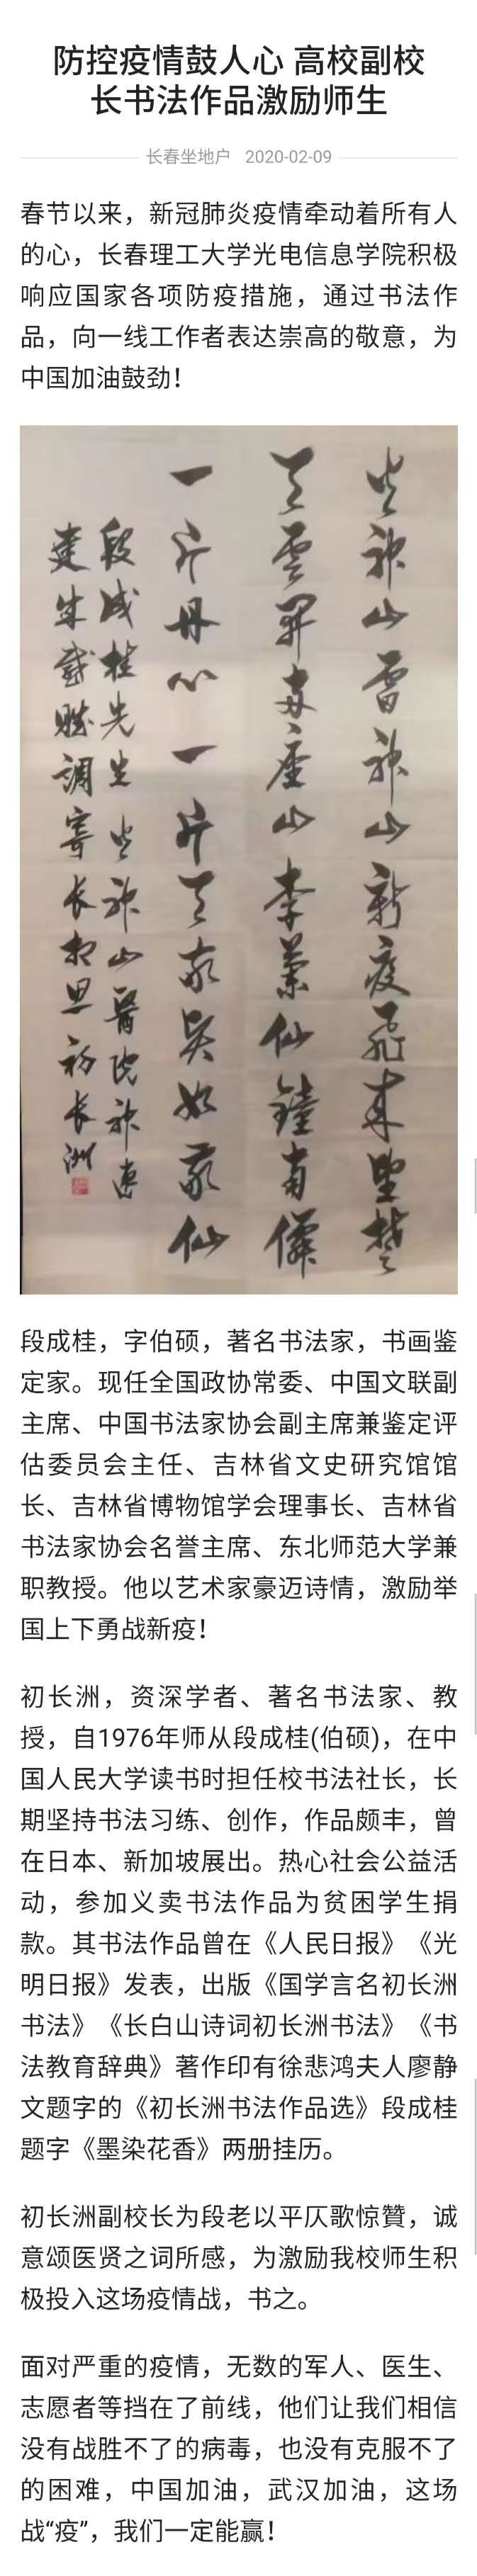 防控疫情鼓人心 高校副校
长书法作品激励师生
长春坐地户 2020-02-09
春节以来，新冠肺炎疫情牵动着所有人
的心，长春理工大学光电信息学院积极
响应国家各项防疫措施，通过书法作
品，向一线工作者表达崇高的敬意，为
中国加油鼓劲！
火神山雷神山新疫飞来坚楚
天云开两座山李兰仙钟南
一片丹心一片天敬吴如敬仙
段成桂先生火神山医院神速
建成感赋调寄长相思初长洲
段成桂，字伯硕，著名书法家，书画鉴
定家。现任全国政协常委、中国文联副
主席、中国书法家协会副主席兼鉴定评
估委员会主任、吉林省文史研究馆馆
长、吉林省博物馆学会理事长、吉林省
书法家协会名誉主席、东北师范大学兼
职教授。他以艺术家豪迈诗情，激励举
国上下勇战新疫！
初长洲，资深学者、著名书法家、教
授，自1976年师从段成桂(伯硕)，在中
国人民大学读书时担任校书法社长，长
期坚持书法习练、创作，作品颇丰，曾
在日本、新加坡展出。热心社会公益活
动，参加义卖书法作品为贫困学生捐
款。其书法作品曾在《人民日报》《光
明日报》发表，出版《国学言名初长洲
书法》《长白山诗词初长洲书法》《书
法教育辞典》著作印有徐悲鸿夫人廖静
文题字的《初长洲书法作品选》段成桂
题字《墨染花香》两册挂历。
初长洲副校长为段老以平仄歌惊贊，诚
意颂医贤之词所感，为激励我校师生积
极投入这场疫情战，书之。
面对严重的疫情，无数的军人、医生、
志愿者等挡在了前线，他们让我们相信
没有战胜不了的病毒，也没有克服不了
的困难，中国加油，武汉加油，这场
战“疫”，我们一定能赢！